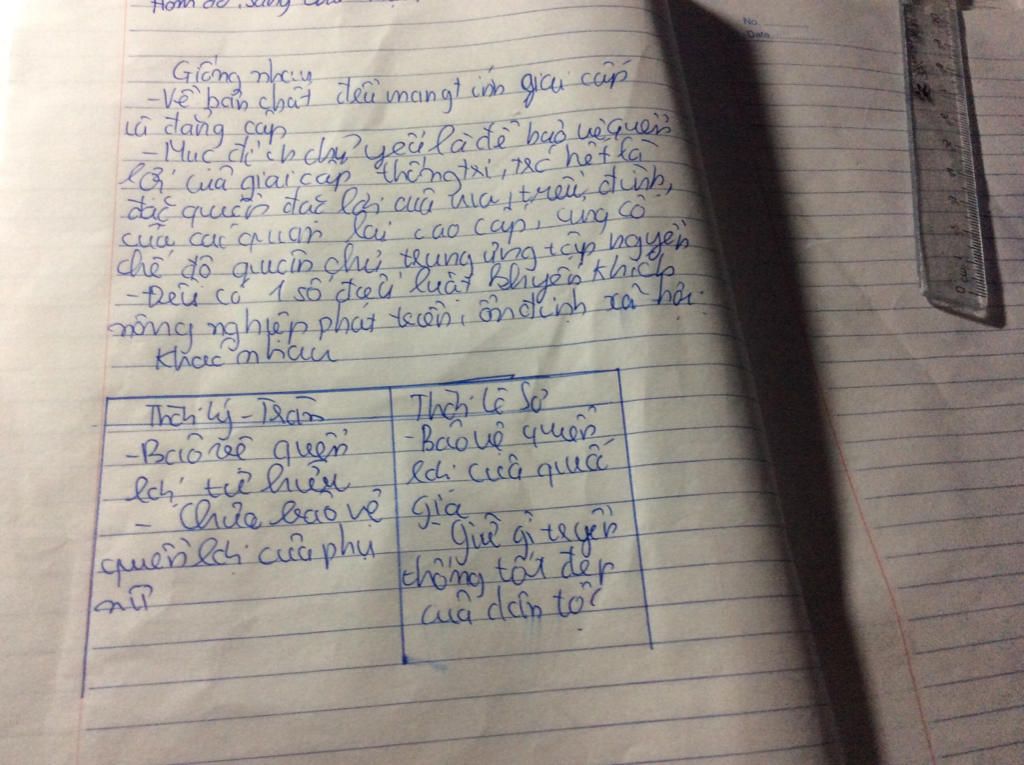 Hôm đó, sáng
No.
Date
Giống nhau
-Về bản chất đều mang tính giai cấp
và đẳng cấp
-Mục đích chủ yếu là để bảo vệ quyền
lợi của giai cấp thống trị, trc hết là
đặc quyền đặc lợi của vua, triều đình,
của các quan lại cao cấp, củng cố
chế độ quân chủ trung ương tập quyền
-Đều có 1 số điều luật khuyến khích
nông nghiệp phát triển, ổn định xã hội.
Khác nhau
Thời Lý-Trần
Thời Lê Sơ
-Bảo vệ quyền
lợi tư hữu
- Chưa bảo vệ
quyền lợi của phụ
nữ
-Bảo vệ quyền
lợi của quốc
gia
-Giữ gì truyền
thống tốt đẹp
của dân tộc